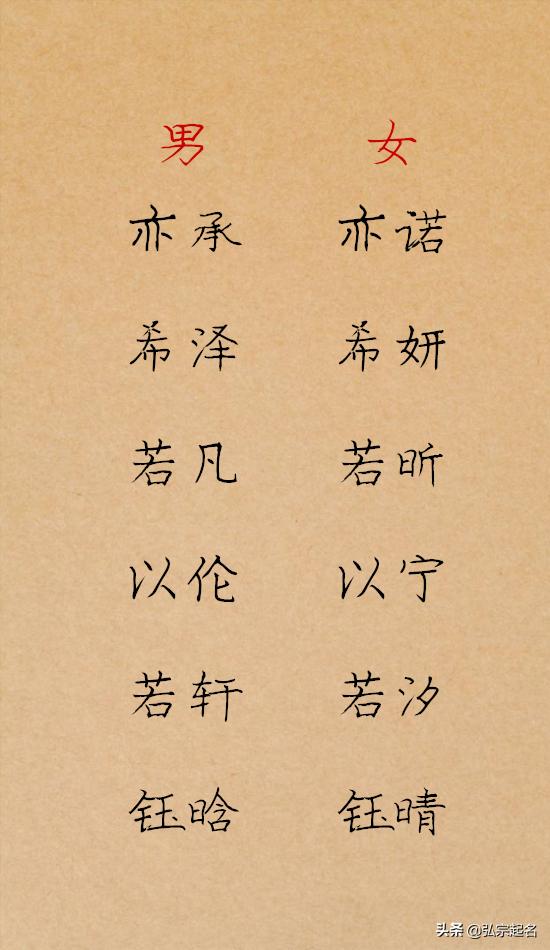 男 女
亦承 亦诺
希泽 希妍
若凡 若昕
以伦 以宁
若轩 若汐
钰晗 钰晴
头条 @弘宗起名